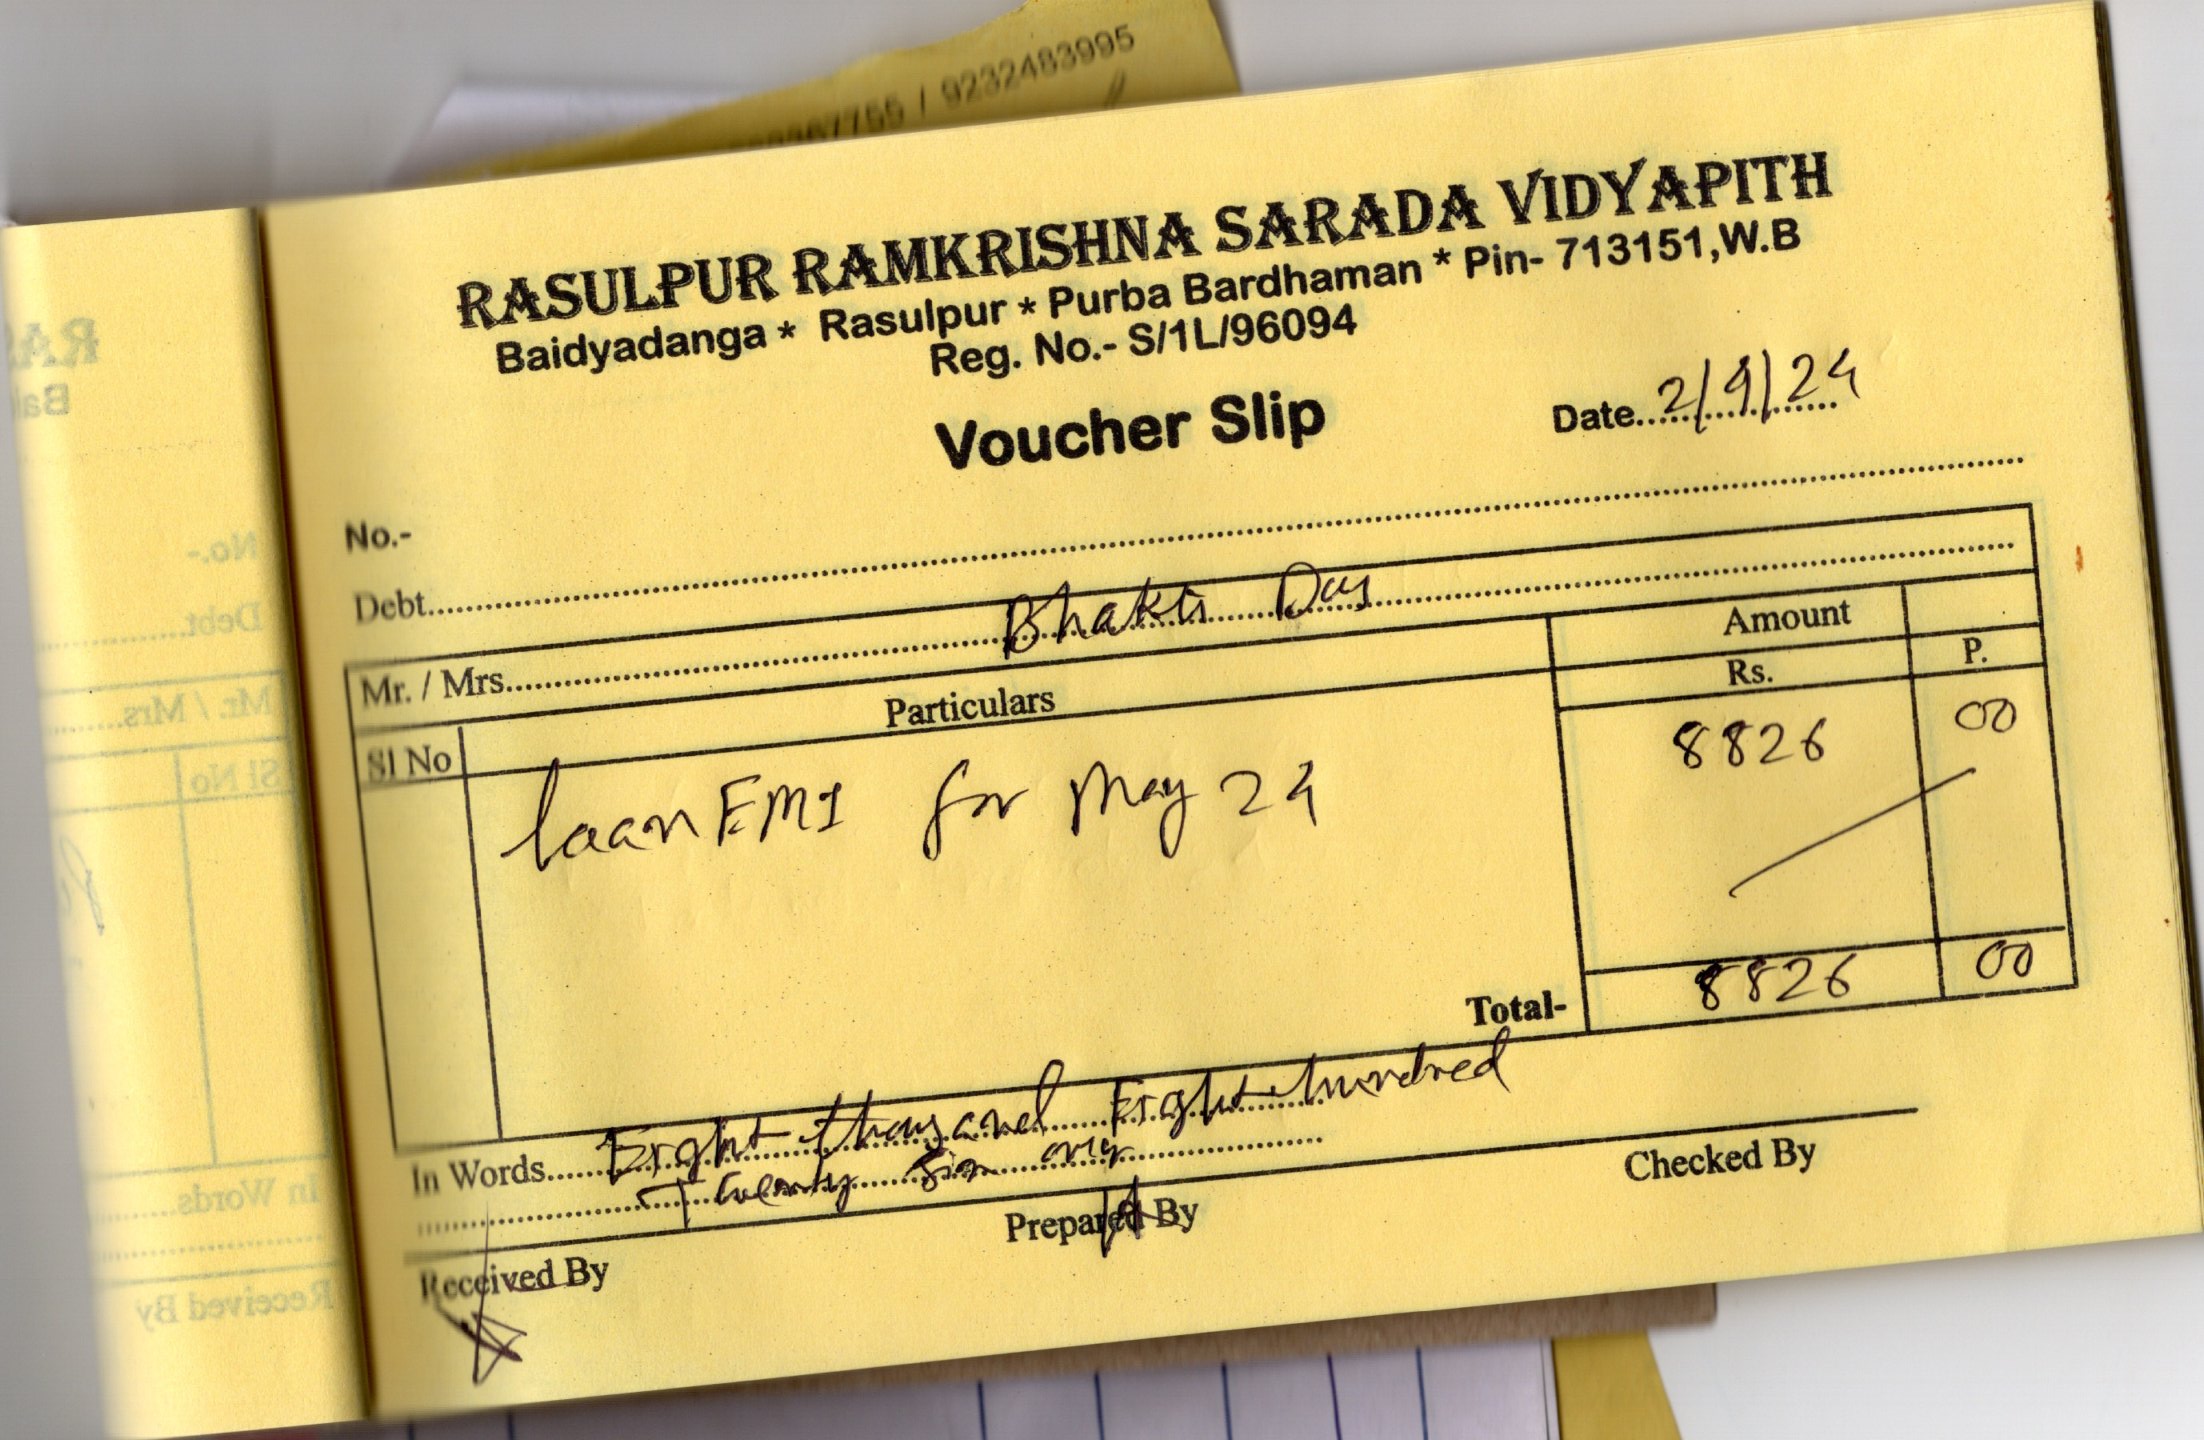 9232483995
RASULPUR RAMKRISHNA SARADA VIDYAPITH
Baidyadanga * Rasulpur * Purba Bardhaman * Pin- 713151,W.B
Reg. No.- S/1L/96094
Voucher Slip
Date 2/9/24
No.-
Debt
Mr. / Mrs. Bhakti Das
Sl No Particulars Amount
Rs. P.
loan EMI for May 24 8826 00
Total- 8826 00
In Words Eight thousand Eight hundred
twenty six only
Received By Prepared By Checked By